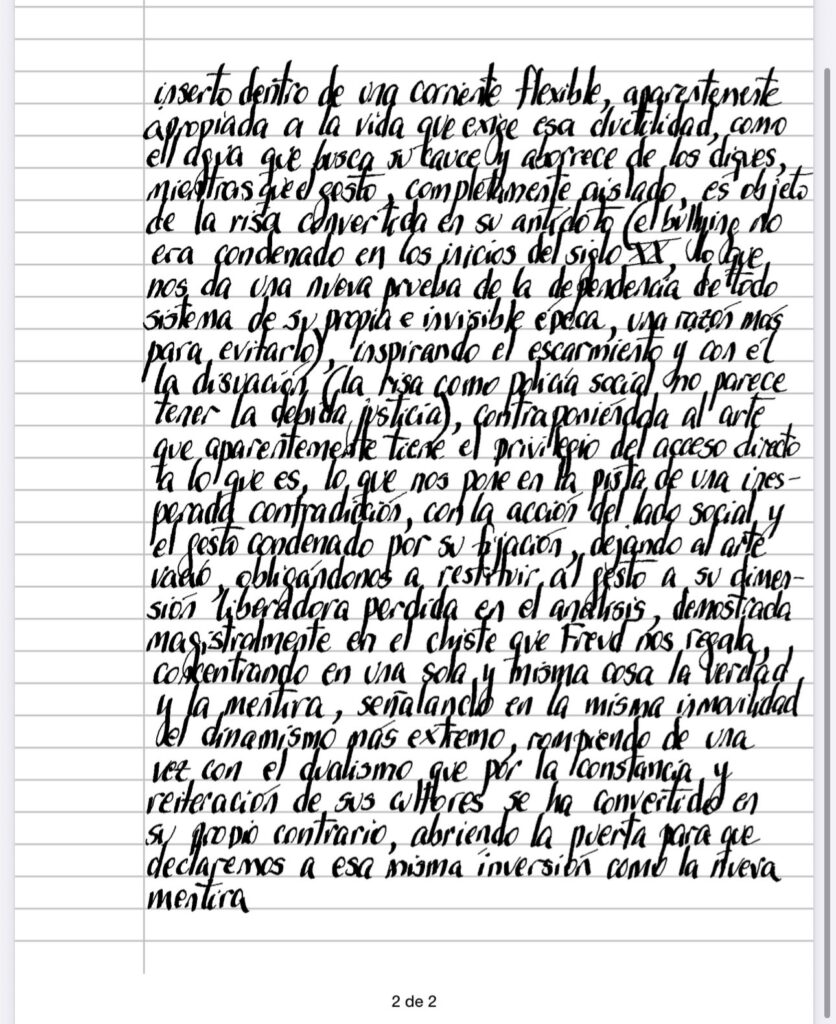 inserto dentro de una corriente flexible, aparentemente
apropiada a la vida que exige esa ductilidad, como
el agua que busca su cauce y aborrece de los diques,
mientras que el gesto, completamente aislado, es objeto
de la risa convertida en su antídoto (el bullying no
era condenado en los inicios del siglo XX, lo que
nos da una nueva prueba de la dependencia de todo
sistema de su propia e invisible época, una razón más
para evitarlo), inspirando el escarmiento y con él
la disuación (la risa como policía social no parece
tener la debida justicia), contraponiéndola al arte
que aparentemente tiene el privilegio del acceso directo
a lo que es, lo que nos pone en la pista de una ines-
perada contradicción, con la acción del lado social y
el gesto condenado por su fijación, dejando al arte
vacío, obligándonos a restituir al gesto a su dimen-
sión liberadora perdida en el análisis, demostrada
magistralmente en el chiste que Freud nos regala,
concentrando en una sola y misma cosa la verdad
y la mentira, señalando en la misma inmovilidad
del dinamismo más extremo, rompiendo de una
vez con el dualismo que por la constancia y
reiteración de sus cultores se ha convertido en
su propio contrario, abriendo la puerta para que
declaremos a esa misma inversión como la nueva
mentira
2 de 2